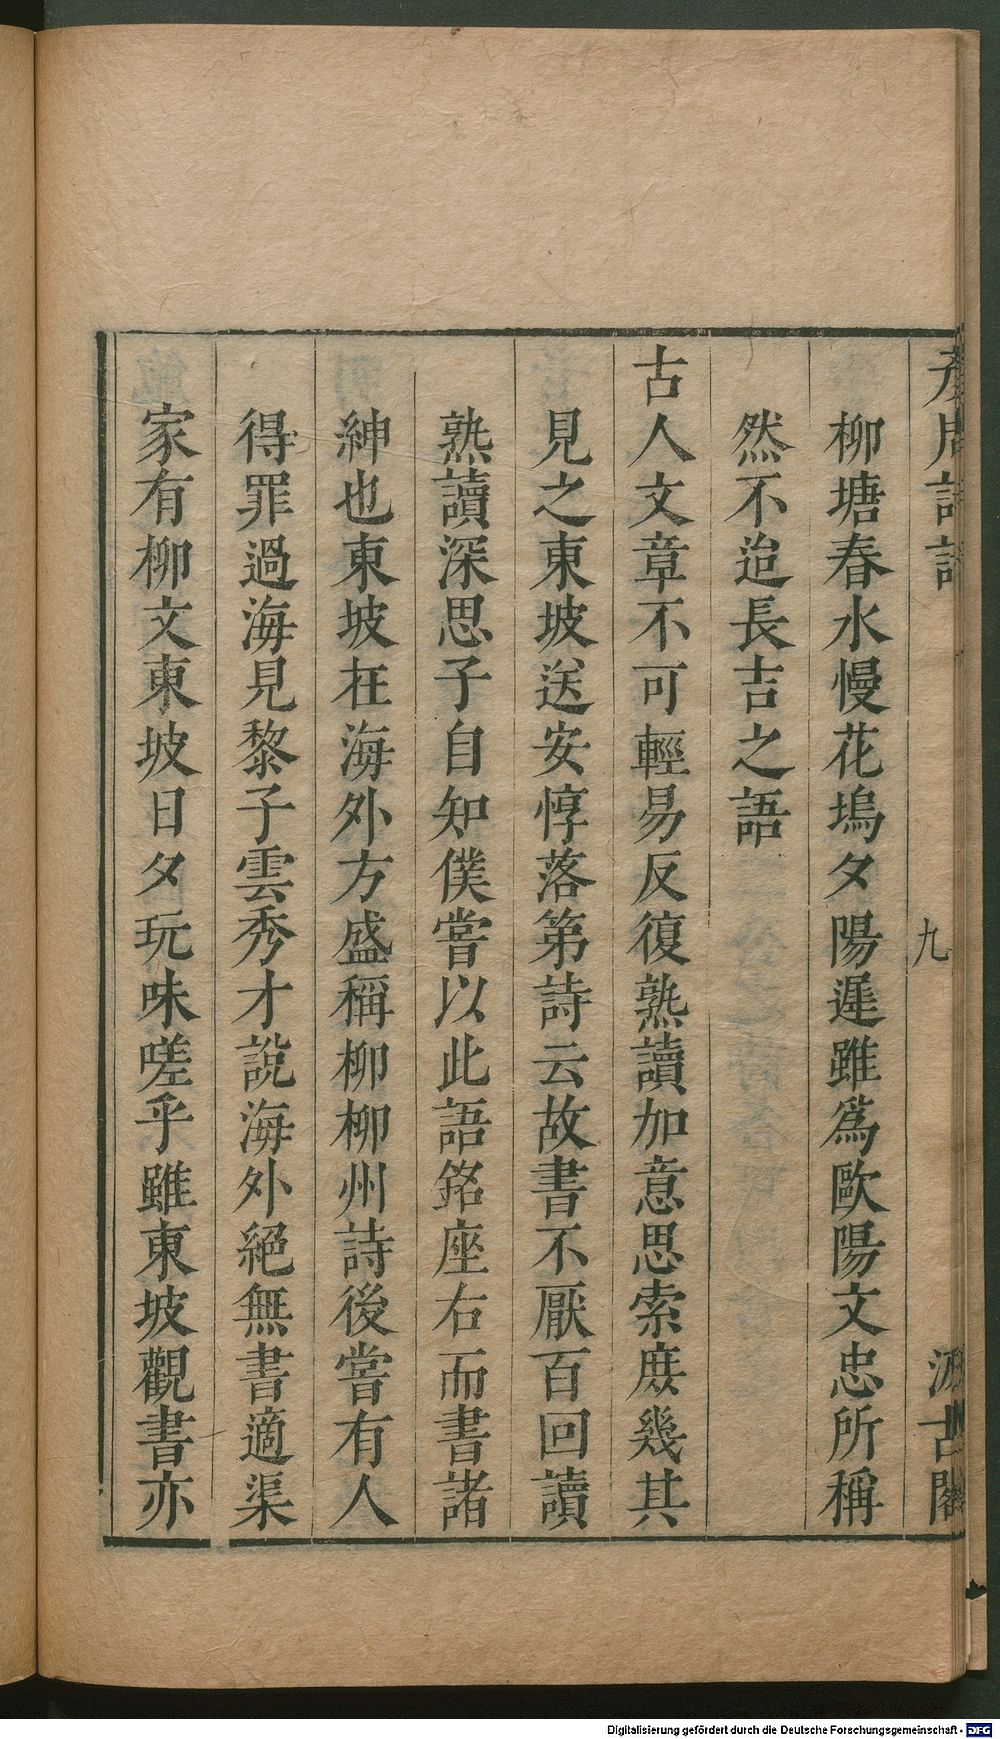 彥周詩話
九
汲古閣
柳塘春水慢花塢夕陽遲雖爲歐陽文忠所稱
然不迨長吉之語
古人文章不可輕易反復熟讀加意思索庻幾其
見之東坡送安惇落第詩云故書不厭百回讀
熟讀深思子自知僕嘗以此語銘座右而書諸
紳也東坡在海外方盛稱柳柳州詩後嘗有人
得罪過海見黎子雲秀才說海外絕無書適渠
家有柳文東坡日夕玩味嗟乎雖東坡觀書亦
Digitalisierung gefördert durch die Deutsche Forschungsgemeinschaft - DFG